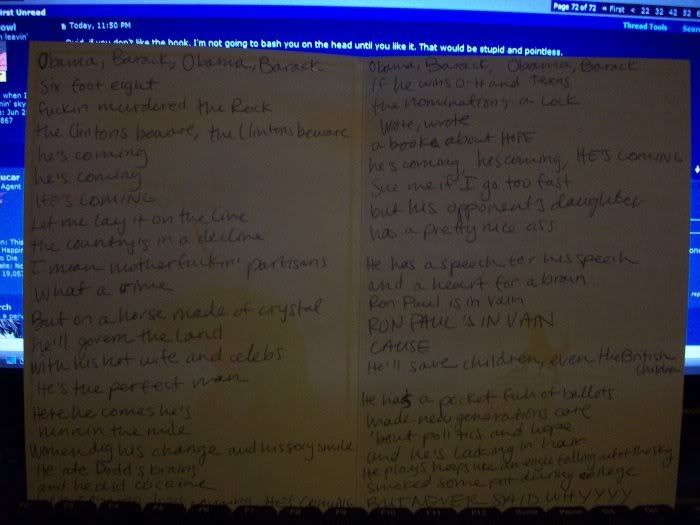 Page 72 of 72
« First
<
22
32
42
52
First Unread
Today, 11:50 PM
Thread Tools
if you don't like the book, I'm not going to bash you on the head until you like it. That would be stupid and pointless.
Obama, Barack, Obama, Barack
Six foot eight
fuckin murdered the Rock
the Clintons beware, the Clintons beware
he's coming
he's coming
HE'S COMING
Let me lay it on the line
the country's in a decline
I mean motherfuckin' partisans
what a crime
But on a horse made of crystal
he'll govern the land
with his hot wife and celebs
He's the perfect man
Here he comes he's
runnin the mile
Women dig his change and his sexy smile
He ate Dodd's brains
and he did cocaine
HE'S COMING
Obama, Barack, Obama, Barack
If he wins O-H and Texas
the nomination's a lock
Wrote, wrote
a book about HOPE
he's coming, he's coming, HE'S COMING
Sue me if I go too fast
but his opponent's daughter
has a pretty nice ass
He has a speech for his speech
and a heart for a brain
Ron Paul is in vain
RON PAUL'S IN VAIN
CAUSE
He'll save children, even the British
children
He has a pocket full of ballots
made new generations care
'bout politics and hope
and he's lacking in hair
He plays hoops like an angle falling out of the sky
smoked some pot during college
BUT NEVER SAID WHYYYY